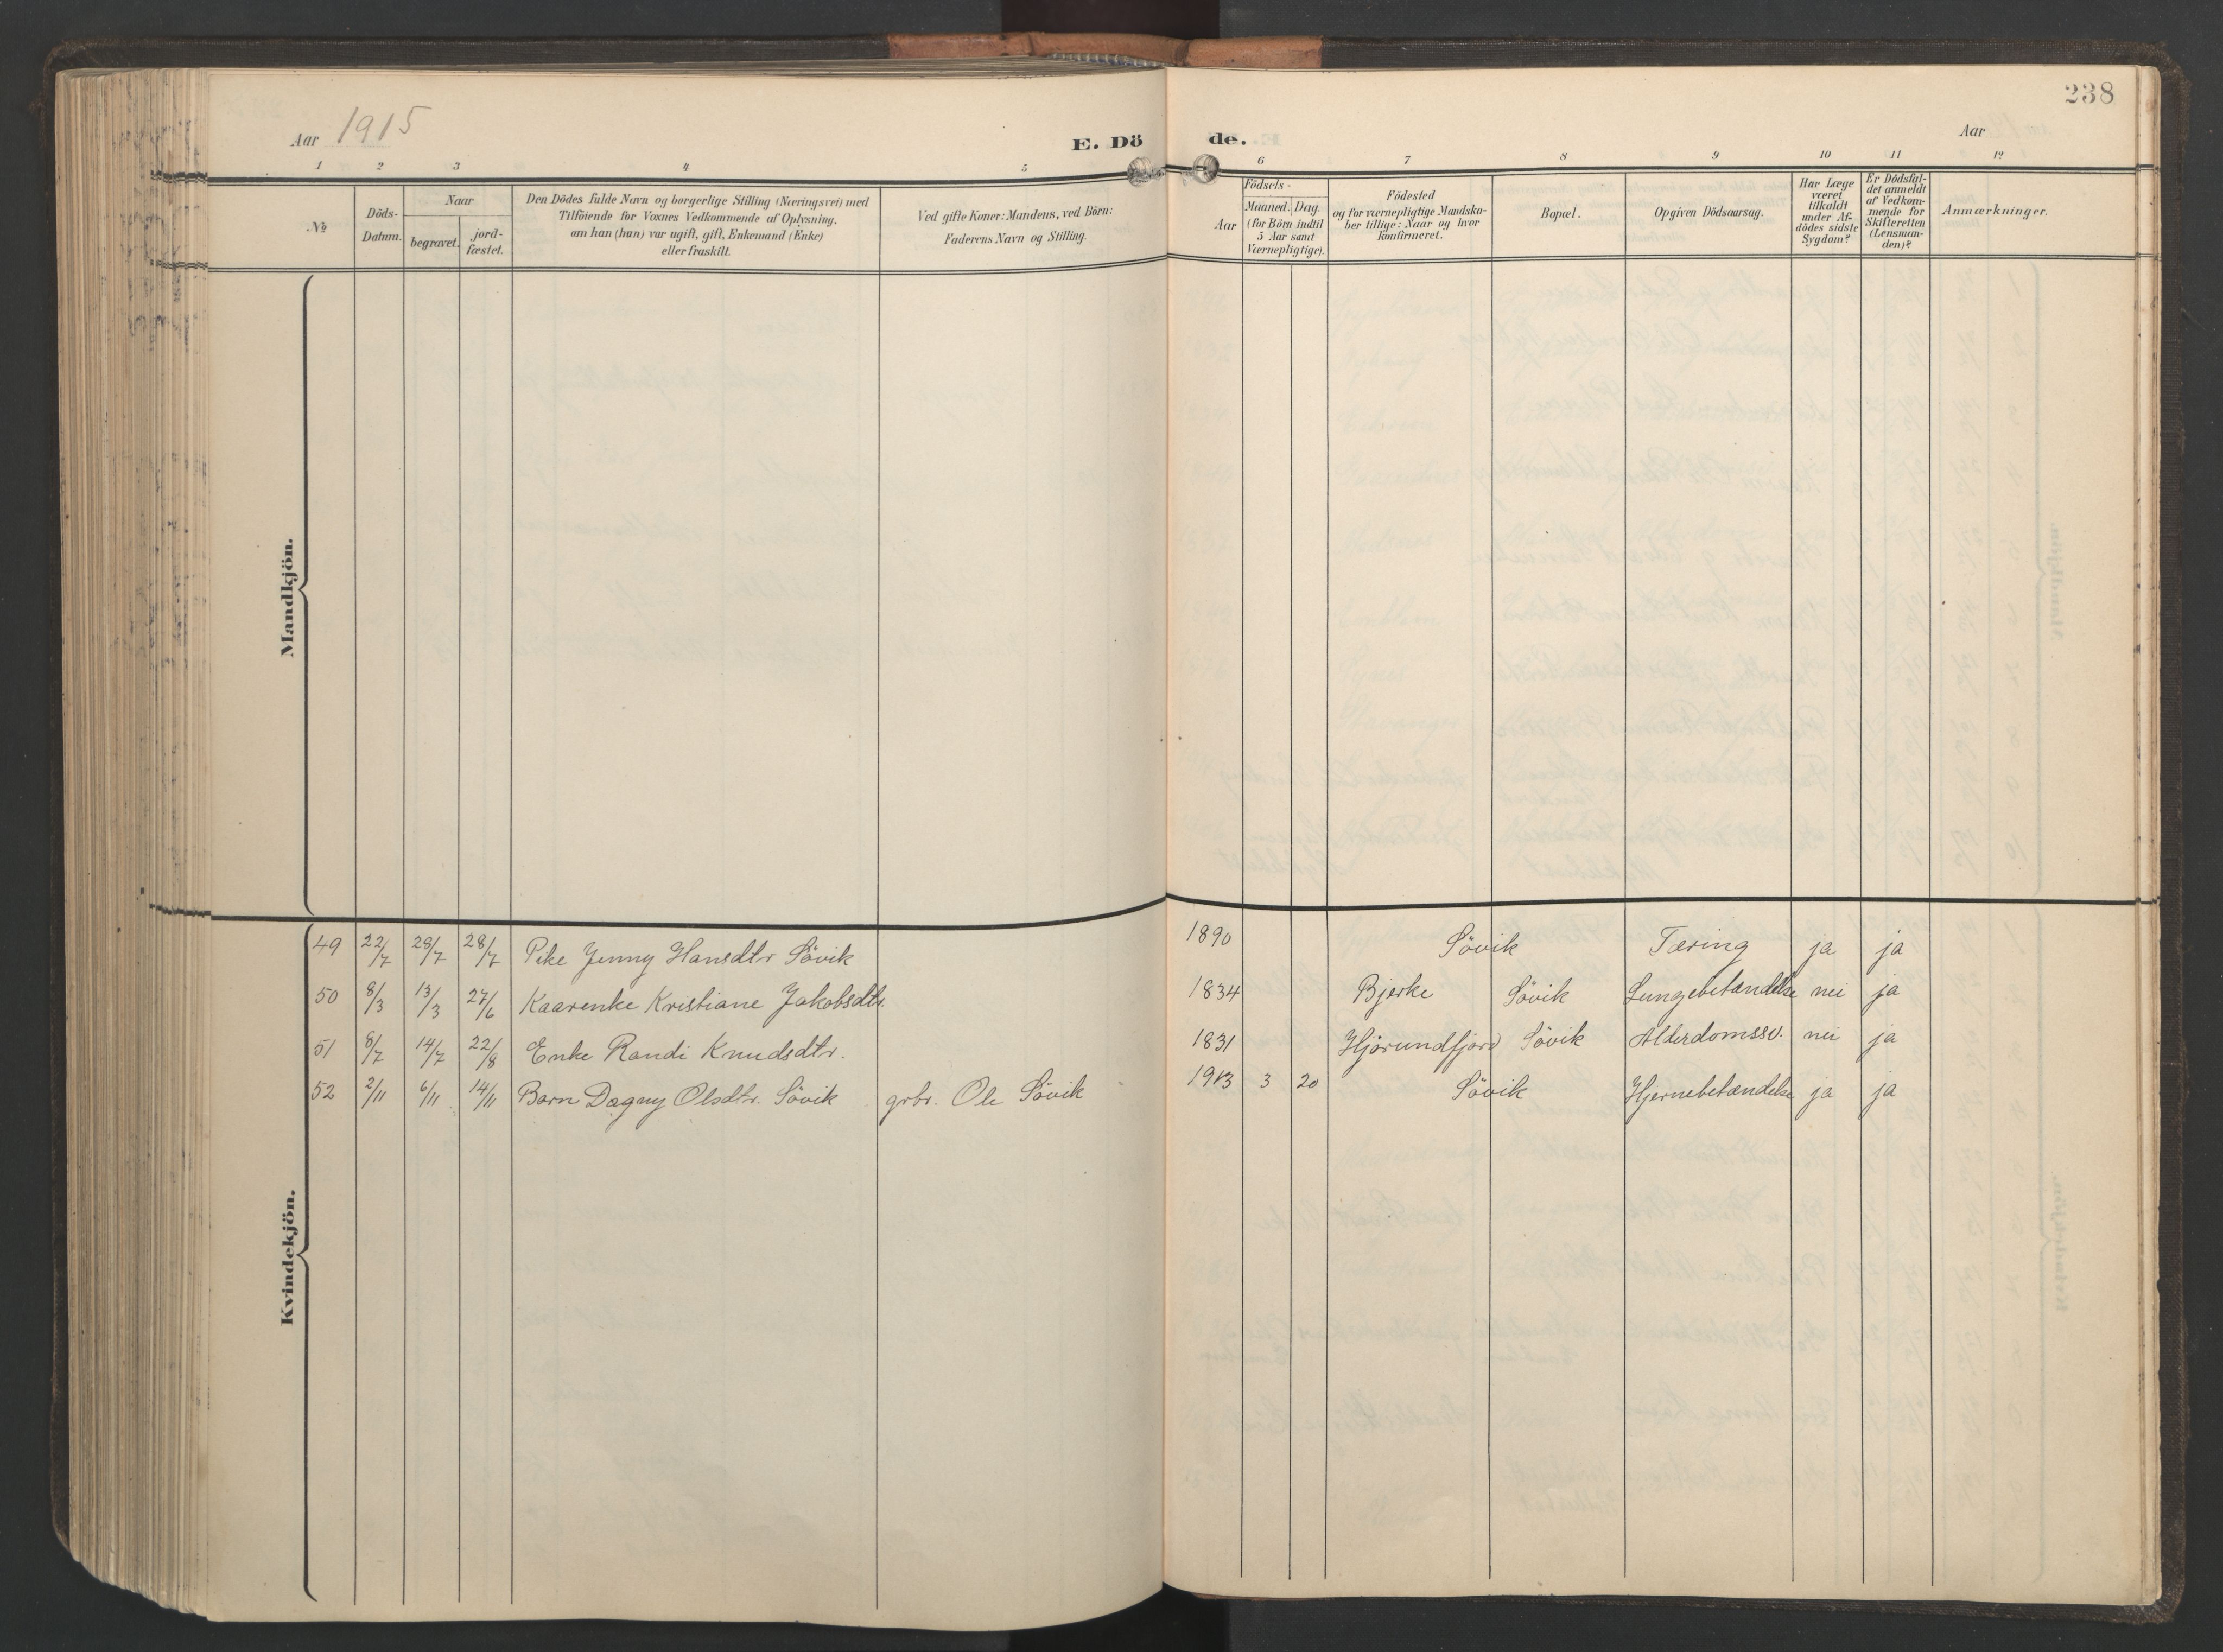 238
Aar 1915
E. Dö
de.
Aar
1 2 3 4 5 6 7 8 9 10 11 12
№
Döds-
Datum.
Naar
begravet.
jord-
fæstet.
Den Dödes fulde Navn og borgerlige Stilling (Næringsvei) med
Tilföiende for Voxnes Vedkommende af Oplysning,
om han (hun) var ugift, gift, Enkemand (Enke)
eller fraskilt.
Ved gifte Koner: Mandens, ved Börn:
Faderens Navn og Stilling.
Födsels-
Aar
Maaned. Dag.
(for Börn indtil
5 Aar samt
Værnepligtige).
Födested
og for værnepligtige Mandska-
ber tillige: Naar og hvor
konfirmeret.
Bopæl.
Opgiven Dödsaarsag.
Har Læge
været
tilkaldt
under Af-
dödes sidste
Sygdom?
Er Dödsfal-
det anmeldt
af Vedkom-
mende for
Skifteretten
(Lensman-
den)?
Anmærkninger.
Mandkjön.
Kvindekjön.
49 22/7 28/7 28/7 Pike Jenny Hansdtr Sövik 1890 Sövik Tæring ja ja
50 8/3 13/3 27/6 Kaarenke Kristiane Jakobsdtr. 1834 Bjerke Sövik Lungebetændelse nei ja
51 8/7 14/7 22/8 Enke Randi Knudsdtr. 1831 Hjörundfjord Sövik Alderdomssv. nei ja
52 2/11 6/11 14/11 Barn Dagny Olsdtr. Sövik grbr. Ole Sövik 1913 3 20 Sövik Hjernebetændelse ja ja